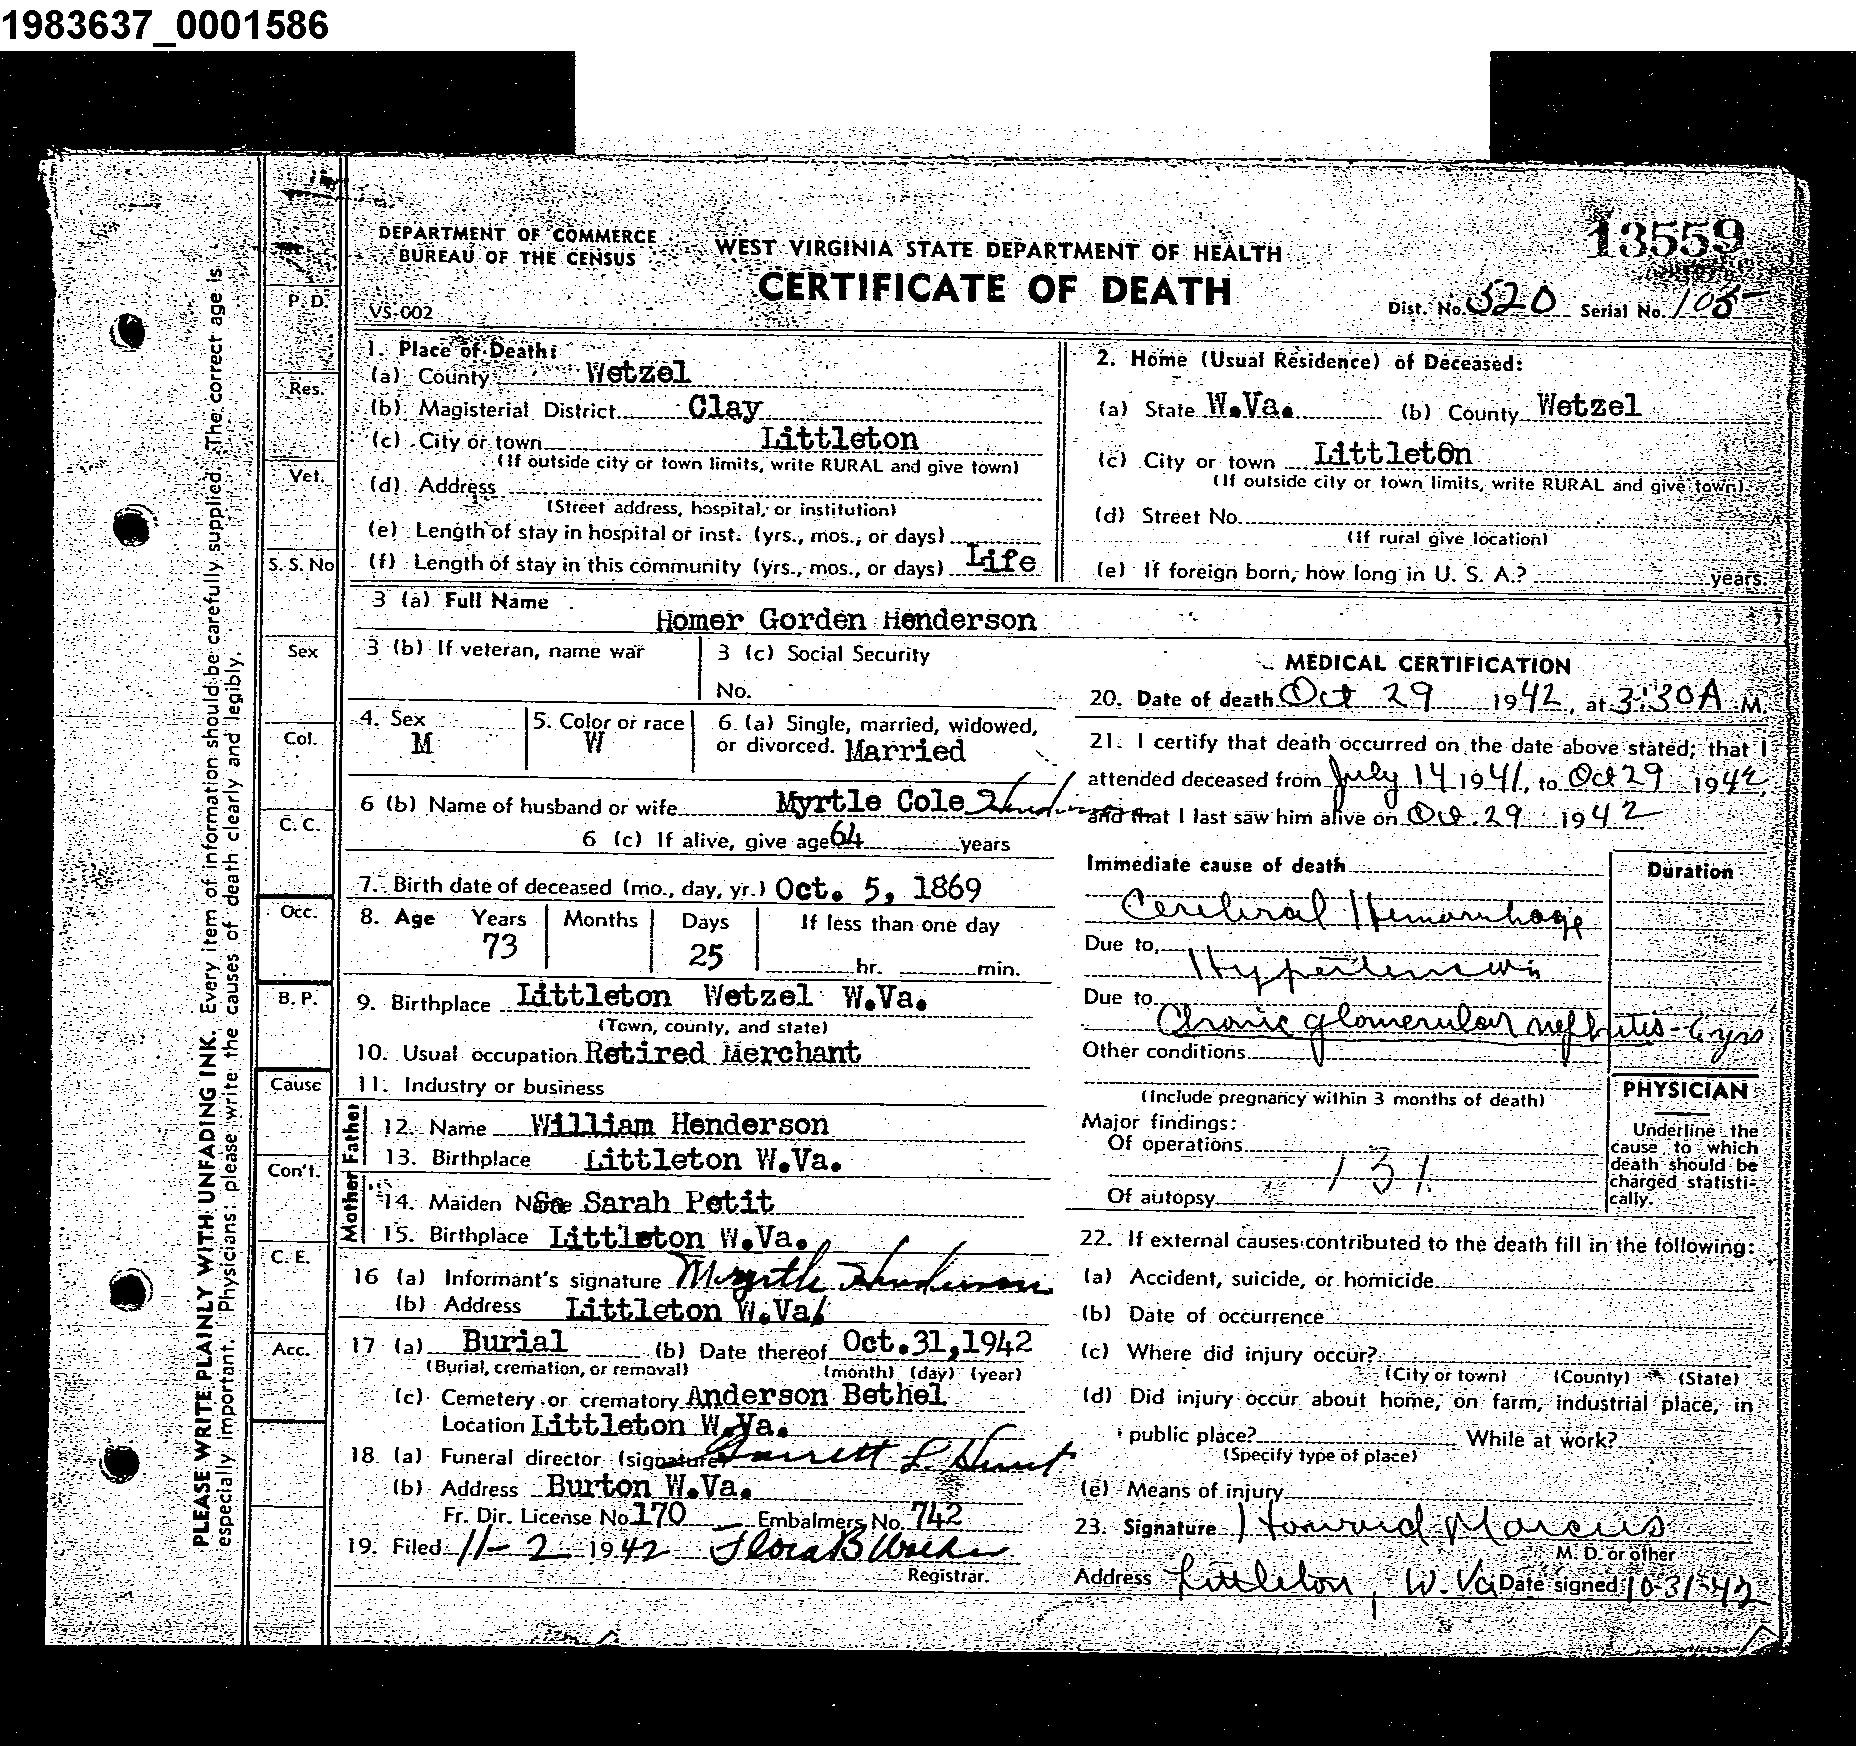 1983637_0001586
13559
DEPARTMENT OF COMMERCE
BUREAU OF THE CENSUS
WEST VIRGINIA STATE DEPARTMENT OF HEALTH
CERTIFICATE OF DEATH
VS-002
Dist. No. 520 Serial No. 105
PLEASE WRITE PLAINLY WITH UNFADING INK. Every item of information should be carefully supplied. The correct age is
especially important. Physicians: please write the causes of death clearly and legibly.
P. D.
Res.
Vet.
S. S. No
Sex
Col.
C. C.
Occ.
B. P.
Cause
Con't.
C. E.
Acc.
1. Place of Death:
(a) County Wetzel
(b) Magisterial District Clay
(c) City or town Littleton
(If outside city or town limits, write RURAL and give town)
(d) Address
(Street address, hospital, or institution)
(e) Length of stay in hospital or inst. (yrs., mos., or days)
(f) Length of stay in this community (yrs., mos., or days) Life
2. Home (Usual Residence) of Deceased:
(a) State W.Va. (b) County Wetzel
(c) City or town Littleton
(If outside city or town limits, write RURAL and give town)
(d) Street No.
(If rural give location)
(e) If foreign born, how long in U. S. A.? years
3 (a) Full Name Homer Gorden Henderson
3 (b) If veteran, name war
3 (c) Social Security
No.
4. Sex M
5. Color or race W
6. (a) Single, married, widowed,
or divorced. Married
6 (b) Name of husband or wife Myrtle Cole Henderson
6 (c) If alive, give age 64 years
7. Birth date of deceased (mo., day, yr.) Oct. 5, 1869
8. Age Years Months Days If less than one day
73 25 hr. min.
9. Birthplace Littleton Wetzel W.Va.
(Town, county, and state)
10. Usual occupation Retired Merchant
11. Industry or business
Father
12. Name William Henderson
13. Birthplace Littleton W.Va.
Mother
14. Maiden Name Sarah Petit
15. Birthplace Littleton W.Va.
16 (a) Informant's signature Myrtle Henderson
(b) Address Littleton W.Va.
17 (a) Burial (b) Date thereof Oct.31,1942
(Burial, cremation, or removal) (month) (day) (year)
(c) Cemetery or crematory Anderson Bethel
Location Littleton W.Va.
18. (a) Funeral director (signature) Garrett L. Hunt
(b) Address Burton W.Va.
Fr. Dir. License No 170 Embalmers No. 742
19. Filed 11-2 1942 Flora B
Registrar.
MEDICAL CERTIFICATION
20. Date of death Oct 29 1942, at 3:30 A M.
21. I certify that death occurred on the date above stated; that I
attended deceased from July 14 1941, to Oct 29 1942,
and that I last saw him alive on Oct. 29 1942
Immediate cause of death Duration
Cerebral Hemorrhage
Due to
Hypertension
Due to
Chronic glomerular nephritis - 6 yrs
Other conditions
(Include pregnancy within 3 months of death)
Major findings:
Of operations
131
Of autopsy
PHYSICIAN
Underline the
cause to which
death should be
charged statisti-
cally.
22. If external causes contributed to the death fill in the following:
(a) Accident, suicide, or homicide
(b) Date of occurrence
(c) Where did injury occur?
(City or town) (County) (State)
(d) Did injury occur about home, on farm, industrial place, in
public place? While at work?
(Specify type of place)
(e) Means of injury
23. Signature Howard Marcus
M. D. or other
Address Littleton, W.Va Date signed 10-31-42